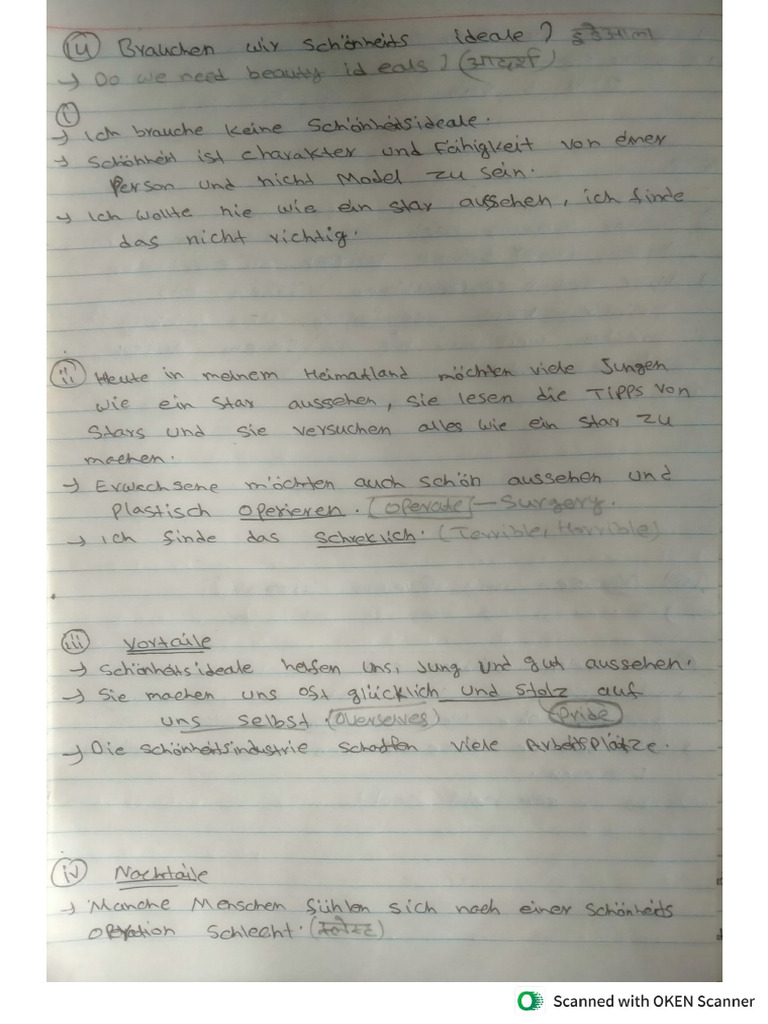 14 Brauchen wir Schönheits ideale? इडेआल
→ Do we need beauty ideals? (आदर्श)
i
→ Ich brauche keine Schönheitsideale.
→ Schönheit ist charakter und Fähigkeit von einer
Person und nicht Model zu sein.
→ Ich wollte nie wie ein star aussehen, ich finde
das nicht richtig.
ii Heute in meinem Heimatland möchten viele Jungen
wie ein Star aussehen, sie lesen die Tipps von
Stars und sie versuchen alles wie ein star zu
machen.
→ Erwachsene möchten auch schön aussehen und
Plastisch operieren. [Operate] - Surgery.
→ Ich finde das Schreklich. (Terrible, Horrible)
iii Vortaile
→ Schönheitsideale helfen uns, Jung und gut aussehen.
→ Sie machen uns oft glücklich und Stolz auf
uns selbst. (Ouerselves) Pride
→ Die Schönheitsindustrie schaffen viele Arbeitsplätze.
iv Nachtaile
→ Manche Menschen fühlen sich nach einer Schönheits
Schlecht.
Scanned with OKEN Scanner